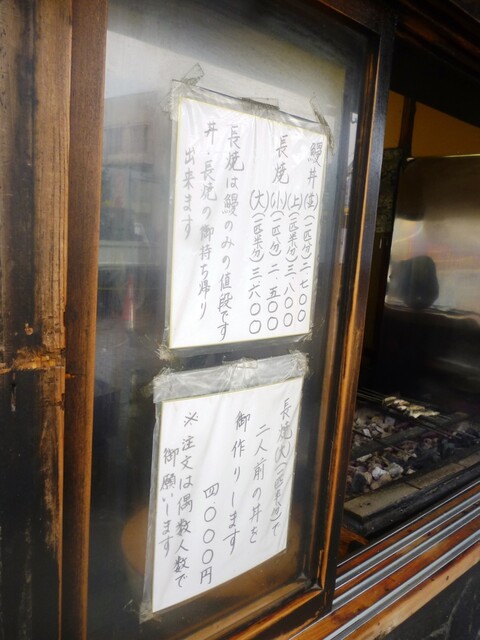 鰻丼(並)(一匹分)二.七〇〇
(上)(一匹半分)三.八〇〇
長焼(小)(一匹分)二.五〇〇
(大)(一匹半分)三.六〇〇
長焼は鰻のみの値段です
丼・長焼の御持ち帰り
出来ます
長焼(大)(一匹半分)で
二人前の丼を
御作りします
四〇〇〇円
※注文は偶数人数で
御願いします